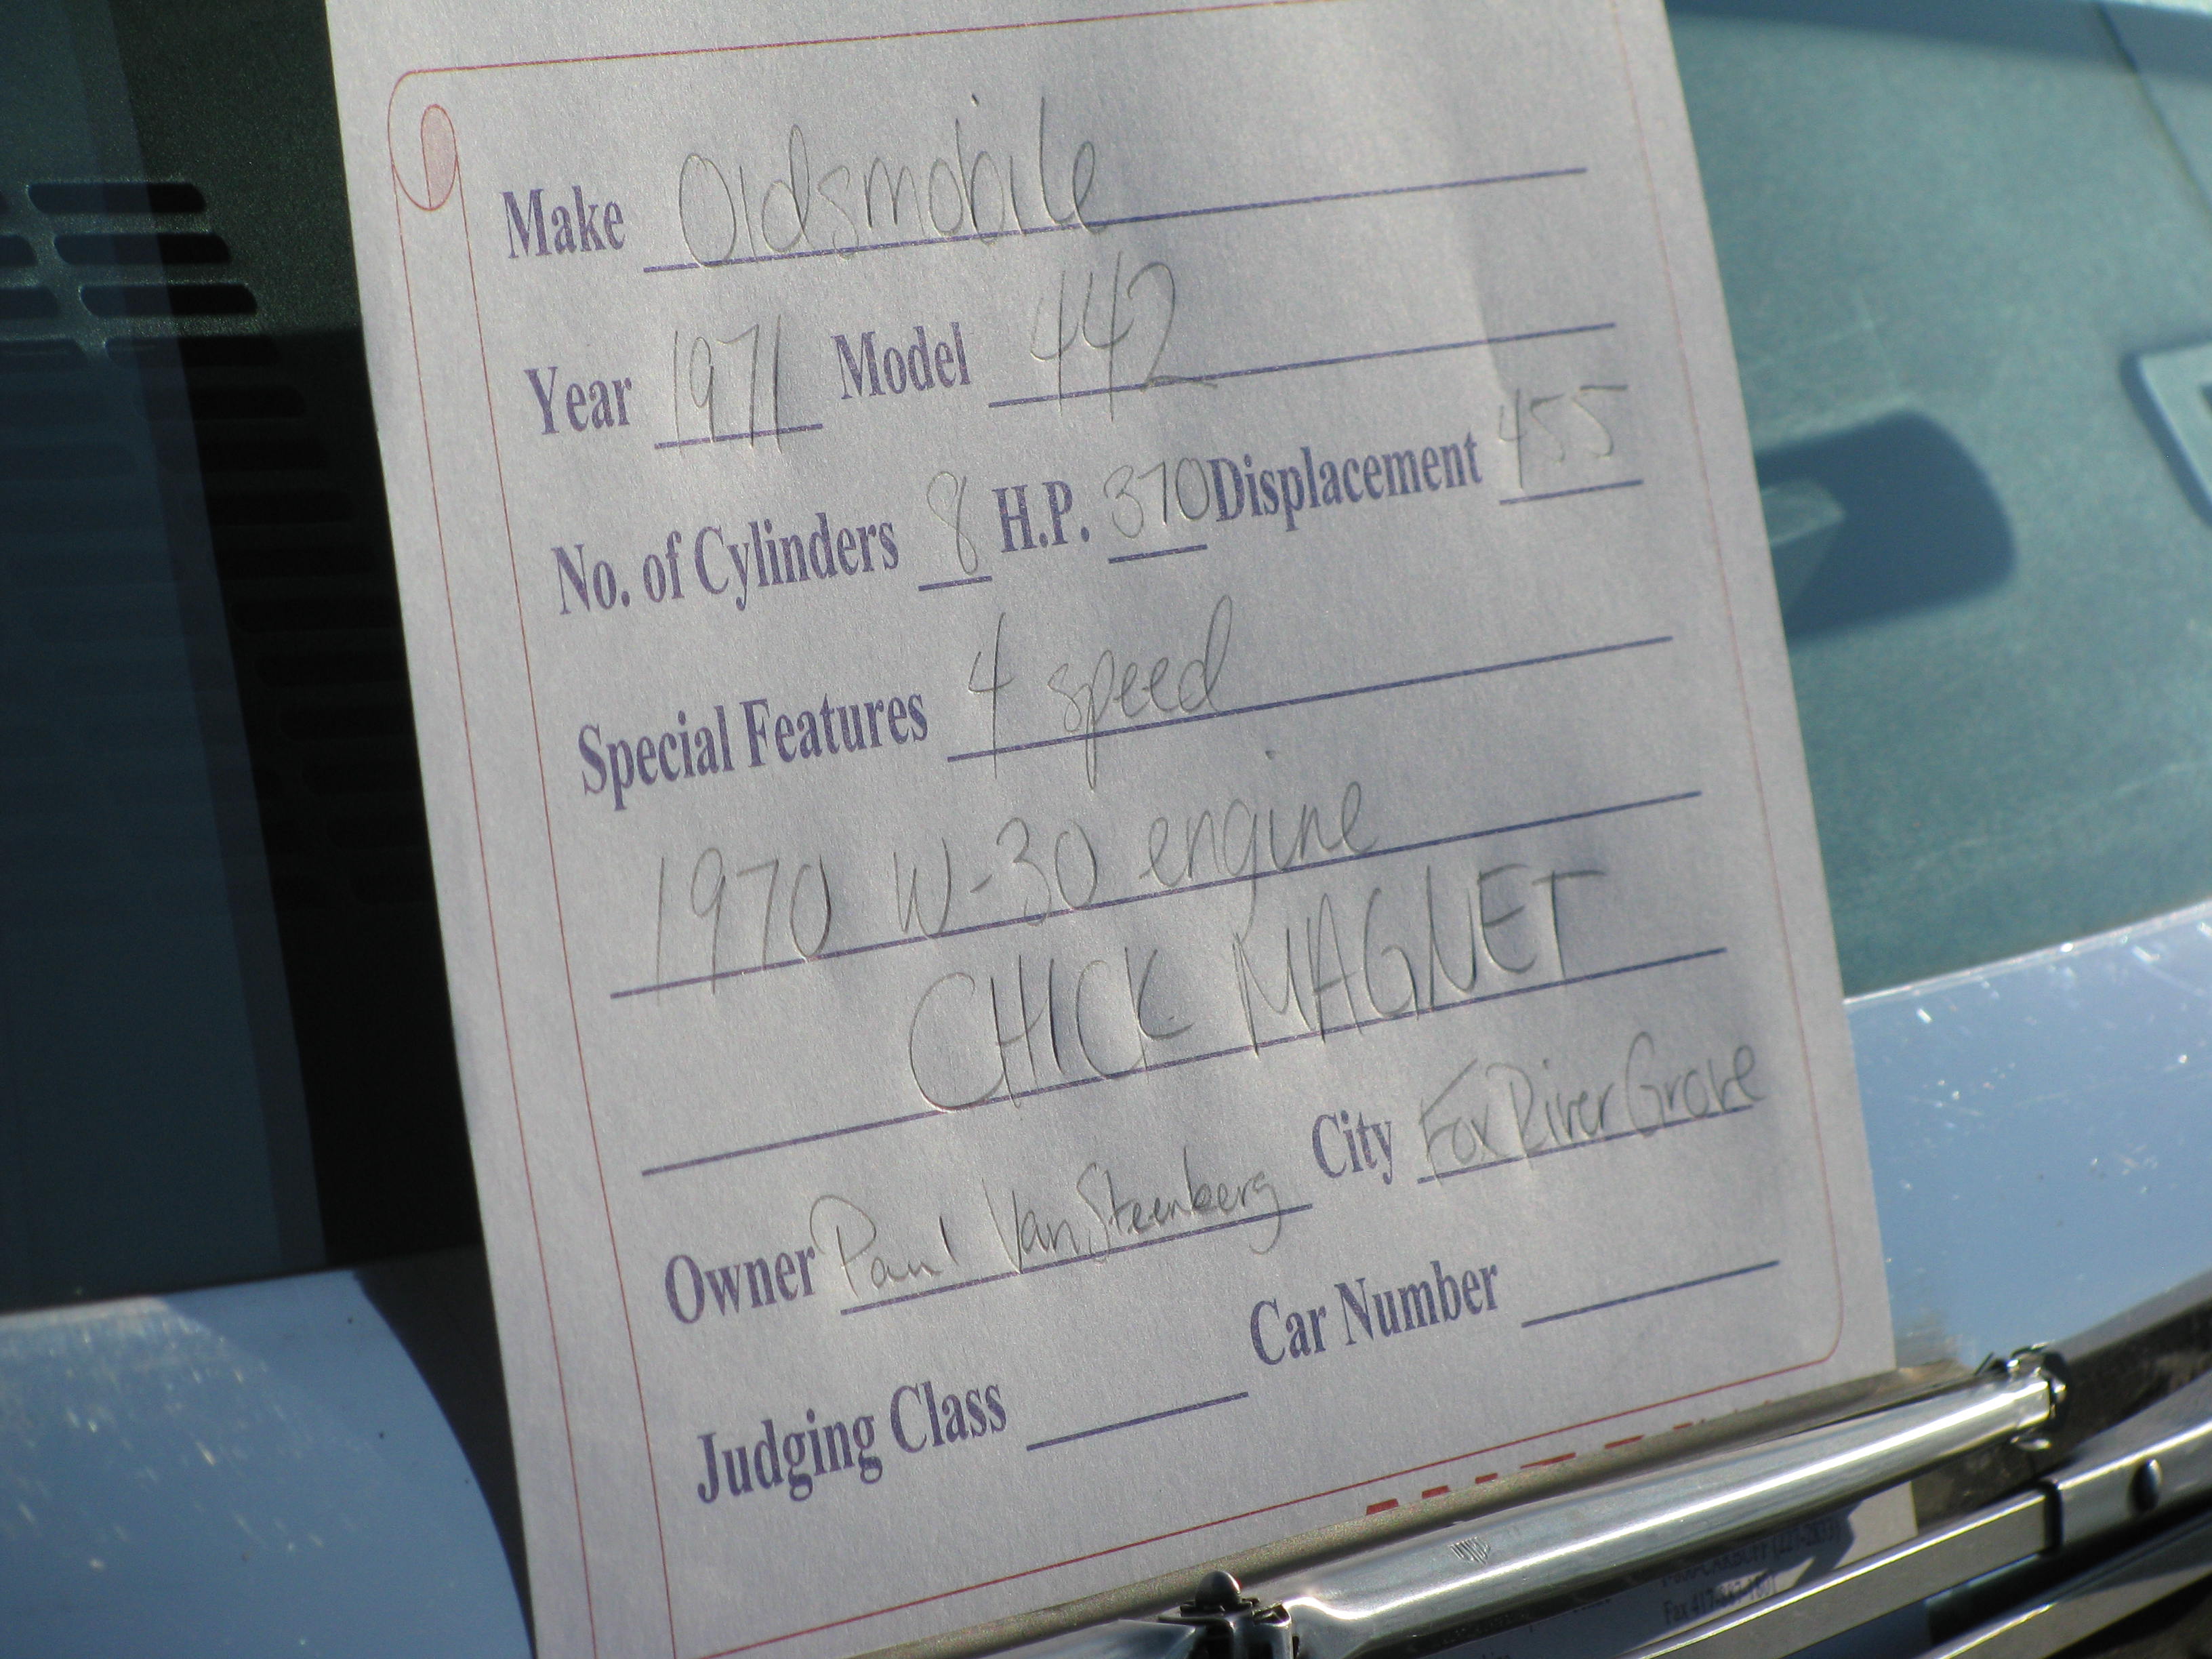 Make Oldsmobile
Year 1971 Model 442
No. of Cylinders 8 H.P. 370 Displacement 455
Special Features 4 speed
1970 W-30 engine
CHICK MAGNET
Owner Paul VanSteenberg City Fox River Grove
Judging Class Car Number
Fax 417-